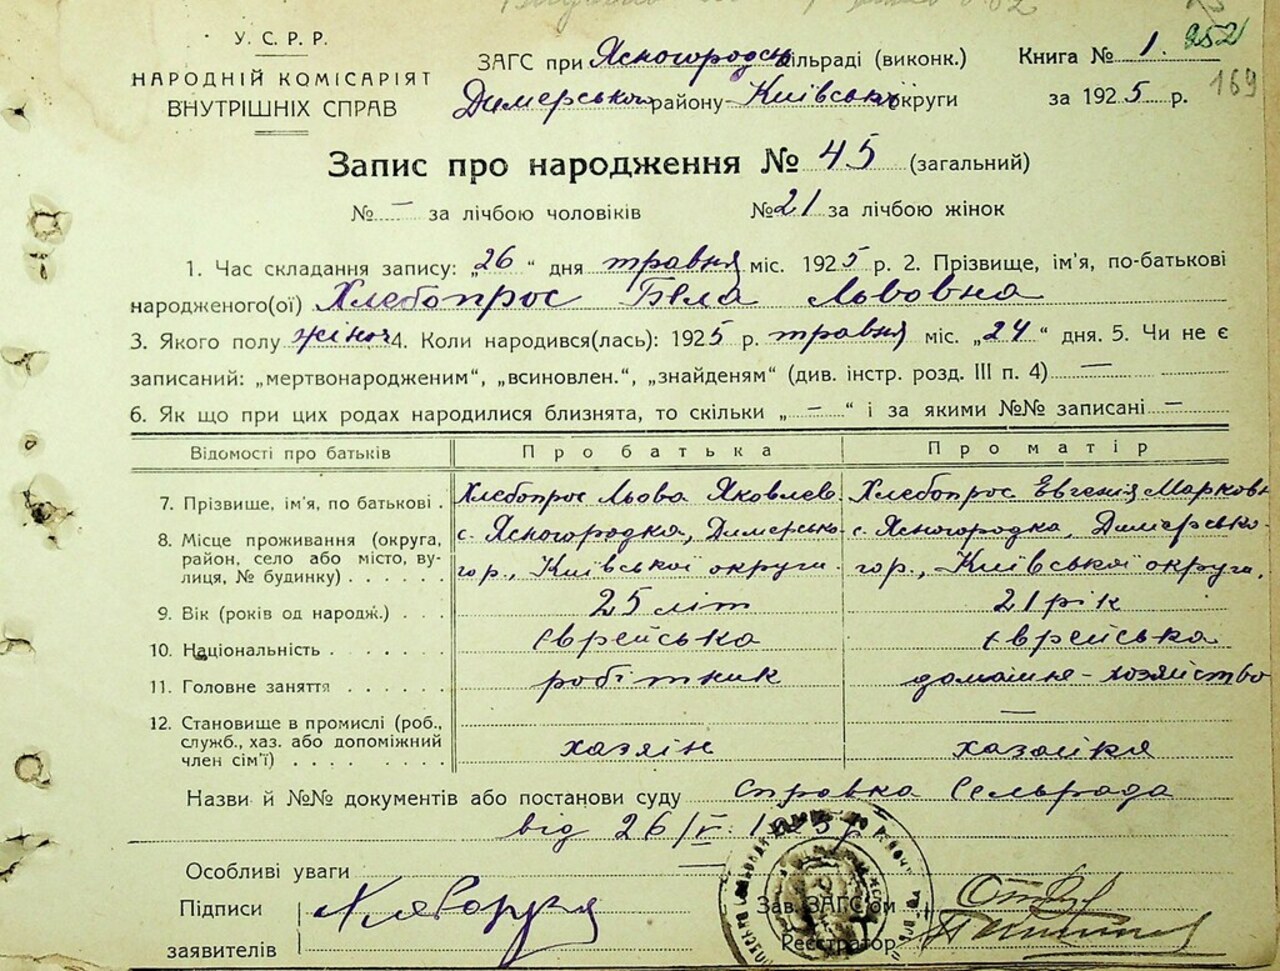 У. С. Р. Р.
НАРОДНІЙ КОМІСАРІЯТ
ВНУТРІШНІХ СПРАВ
ЗАГС при Ясногородськ сільраді (виконк.)
Димерського району Київськ округи
Книга № 1. 252
за 1925 р. 169
Запис про народження № 45 (загальний)
№ — за лічбою чоловіків № 21 за лічбою жінок
1. Час складання запису: „26“ дня травня міс. 1925 р. 2. Прізвище, ім'я, по-батькові
народженого(ої) Хлебопрос Бела Львовна
3. Якого полу жіноч 4. Коли народився(лась): 1925 р. травня міс. „24“ дня. 5. Чи не є
записаний: „мертвонародженим“, „всиновлен.“, „знайденям“ (див. інстр. розд. III п. 4) —
6. Як що при цих родах народилися близнята, то скільки „ — “ і за якими №№ записані —
Відомості про батьків Про батька Про матір
7. Прізвище, ім'я, по батькові . Хлебопрос Льова Яковлев. Хлебопрос Евгенія Марковн
8. Місце проживання (округа, с. Ясногородка, Димерсько- с. Ясногородка, Димерсько-
район, село або місто, ву-
лиця, № будинку) . . . . . . гор., Київської округи. гор., Київської округи.
9. Вік (років од народж.) . . . 25 літ 21 рік
10. Національність . . . . . . Єврейська Єврейська
11. Головне заняття . . . . . . робітник домашнє-хозяйство
12. Становище в промислі (роб., —
служб., хаз. або допоміжний хазяін хазайка
член сім'ї) . . . . . . . .
Назви й №№ документів або постанови суду Справка Сельрада
від 26/V. 1925 р.
Особливі уваги —
Підписи
заявителів
Зав. ЗАГС'ом
Реєстратор